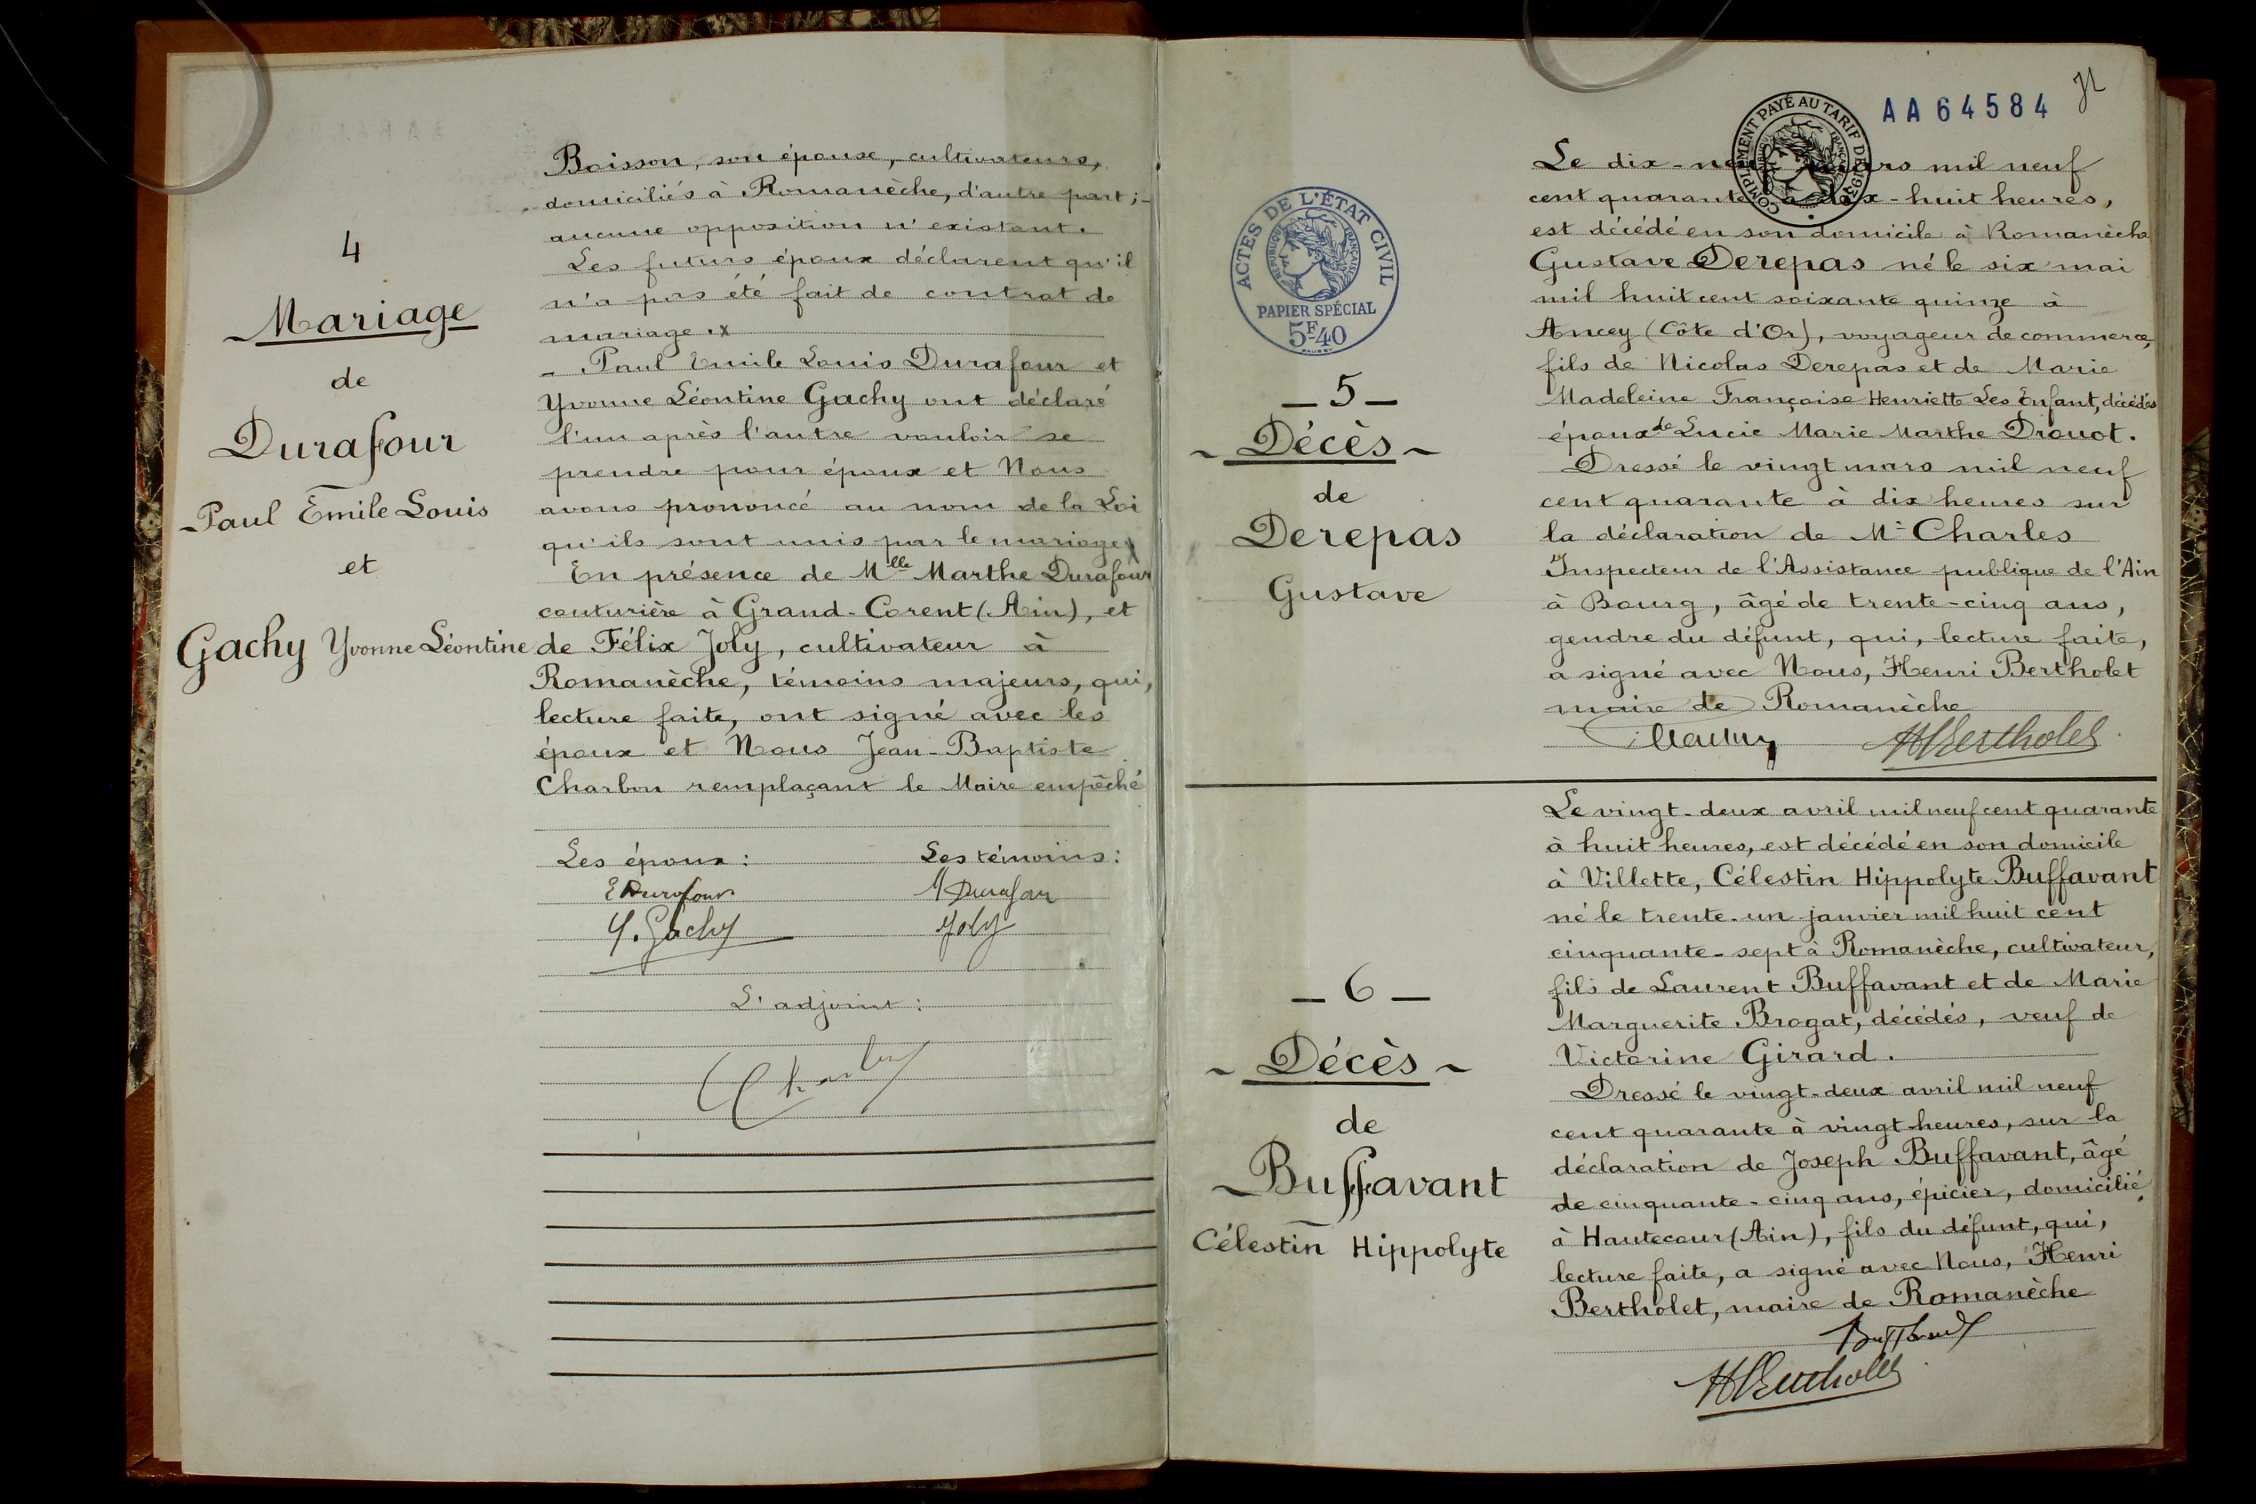 4
Mariage
de
Durafour
Paul Emile Louis
et
Gachy Yvonne Léontine
Boisson, son épouse, cultivateurs,
domiciliés à Romanèche, d'autre part ;
aucune opposition n'existant.
Les futurs époux déclarent qu'il
n'a pas été fait de contrat de
mariage.
Paul Emile Louis Durafour et
Yvonne Léontine Gachy ont déclaré
l'un après l'autre vouloir se
prendre pour époux et Nous
avons prononcé au nom de la Loi
qu'ils sont unis par le mariage
En présence de Mlle Marthe Durafour
couturière à Grand-Corent (Ain), et
de Félix Joly, cultivateur à
Romanèche, témoins majeurs, qui,
lecture faite, ont signé avec les
époux et Nous Jean-Baptiste
Charbon remplaçant le Maire empêché
Les époux : Les témoins :
E Durafour M Durafour
Y. Gachy Joly
L'adjoint :
AA 64584
COMPLEMENT PAYÉ AU TARIF DE
ACTES DE L'ÉTAT CIVIL
REPUBLIQUE FRANÇAISE
PAPIER SPÉCIAL
5F40
_ 5 _
Décès
de
Derepas
Gustave
Le dix-neuf mars mil neuf
cent quarante à dix-huit heures,
est décédé en son domicile à Romanèche
Gustave Derepas né le six mai
mil huit cent soixante quinze à
Ancey (Côte d'Or), voyageur de commerce,
fils de Nicolas Derepas et de Marie
Madeleine Françoise Henriette Les Enfant, décédés
époux de Lucie Marie Marthe Drouot.
Dressé le vingt mars mil neuf
cent quarante à dix heures sur
la déclaration de Mr Charles
Inspecteur de l'Assistance publique de l'Ain
à Bourg, âgé de trente-cinq ans,
gendre du défunt, qui, lecture faite,
a signé avec Nous, Henri Bertholet
maire de Romanèche
HBertholet
_ 6 _
Décès
de
Buffavant
Célestin Hippolyte
Le vingt-deux avril mil neuf cent quarante
à huit heures, est décédé en son domicile
à Villette, Célestin Hippolyte Buffavant
né le trente-un janvier mil huit cent
cinquante-sept à Romanèche, cultivateur,
fils de Laurent Buffavant et de Marie
Marguerite Brogat, décédés, veuf de
Victorine Girard.
Dressé le vingt-deux avril mil neuf
cent quarante à vingt heures, sur la
déclaration de Joseph Buffavant, âgé
de cinquante-cinq ans, épicier, domicilié
à Hautecour (Ain), fils du défunt, qui,
lecture faite, a signé avec Nous, Henri
Bertholet, maire de Romanèche
Buffavant
HBertholet